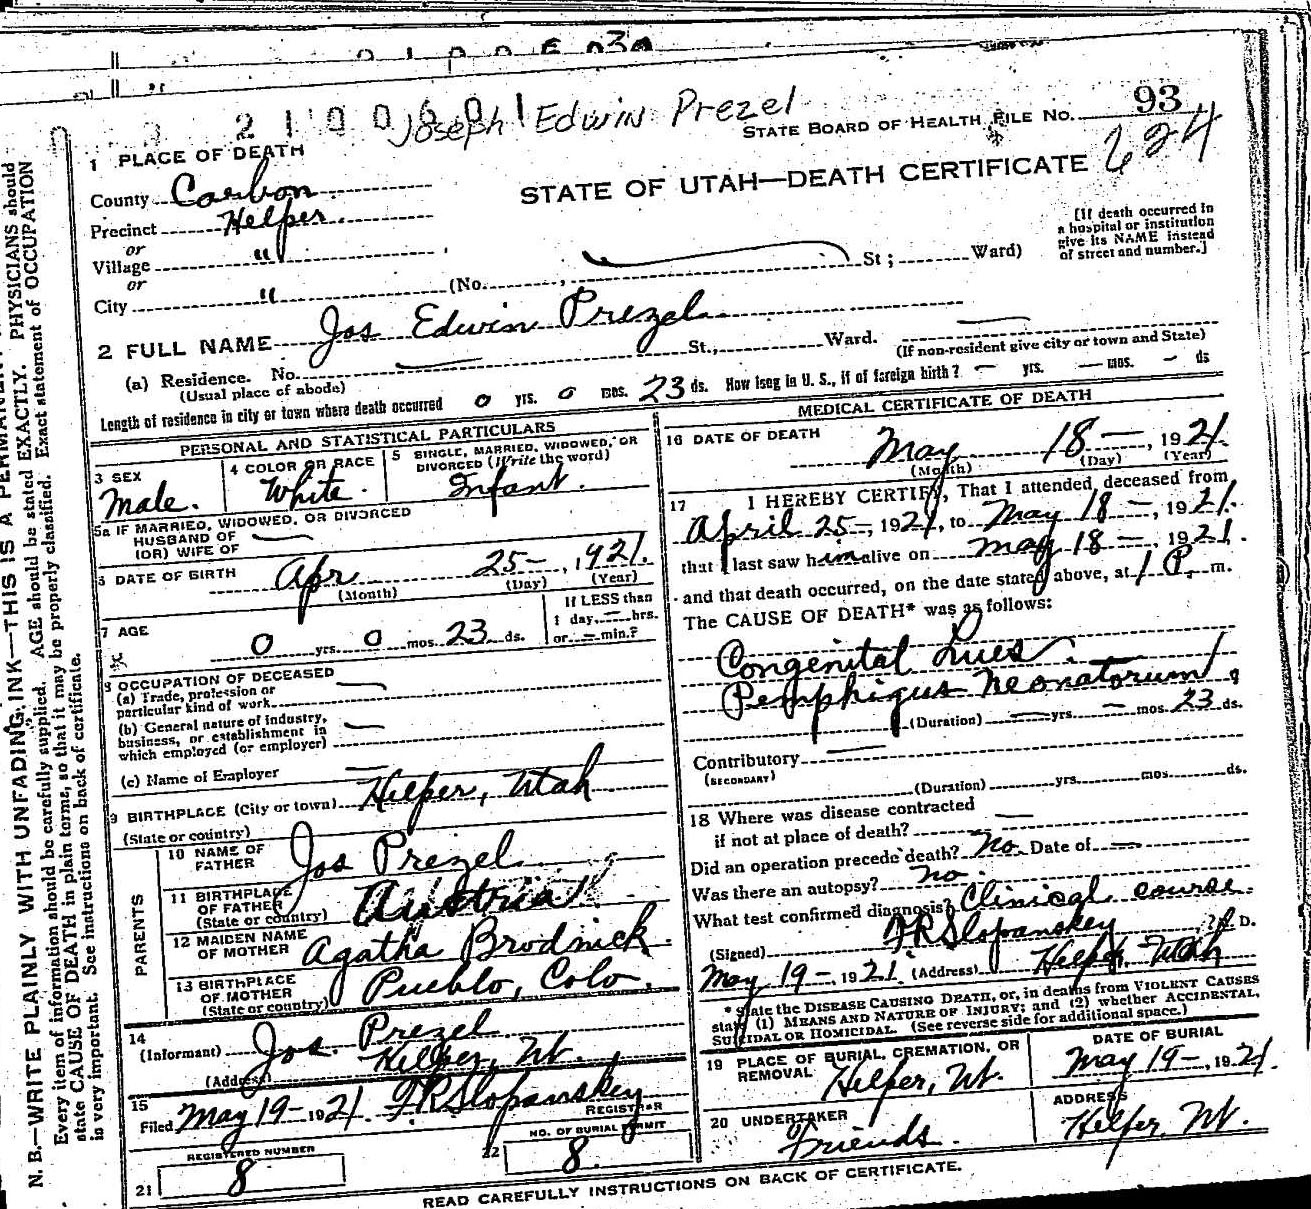 2 1 0 0 6 0 1
Joseph Edwin Prezel
93
STATE BOARD OF HEALTH FILE No.
624
STATE OF UTAH—DEATH CERTIFICATE
1 PLACE OF DEATH
County Carbon
Precinct Helper
or
Village "
or
City "
(No. St; Ward)
[If death occurred in
a hospital or institution
give its NAME instead
of street and number.]
2 FULL NAME Jos Edwin Prezel
(a) Residence. No. St., Ward.
(Usual place of abode)
(If non-resident give city or town and State)
Length of residence in city or town where death occurred 0 yrs. 0 mos. 23 ds. How long in U. S., if of foreign birth? — yrs. — mos. — ds
PERSONAL AND STATISTICAL PARTICULARS
3 SEX
Male.
4 COLOR OR RACE
White.
5 SINGLE, MARRIED, WIDOWED, OR
DIVORCED (Write the word)
Infant.
5a IF MARRIED, WIDOWED, OR DIVORCED
HUSBAND OF
(OR) WIFE OF
6 DATE OF BIRTH Apr 25—, 1921.
(Month) (Day) (Year)
7 AGE
0 yrs. 0 mos. 23 ds.
If LESS than
1 day, — hrs.
or — min.?
8 OCCUPATION OF DECEASED
(a) Trade, profession or
particular kind of work
(b) General nature of industry,
business, or establishment in
which employed (or employer)
(c) Name of Employer
9 BIRTHPLACE (City or town) Helper, Utah
(State or country)
PARENTS
10 NAME OF
FATHER
Jos Prezel
11 BIRTHPLACE
OF FATHER
(State or country)
Austria
12 MAIDEN NAME
OF MOTHER
Agatha Brodnick
13 BIRTHPLACE
OF MOTHER
(State or country)
Pueblo, Colo.
14
(Informant) Jos. Prezel
(Address) Helper, Ut.
15
Filed May 19— 1921. F.R. Slopanskey
REGISTRAR
REGISTERED NUMBER
21 8
NO. OF BURIAL PERMIT
22 8.
MEDICAL CERTIFICATE OF DEATH
16 DATE OF DEATH
May 18—, 1921.
(Month) (Day) (Year)
17 I HEREBY CERTIFY, That I attended, deceased from
April 25—, 1921, to May 18—, 1921.
that I last saw him alive on May 18—, 1921.
and that death occurred, on the date stated above, at 1 P. m.
The CAUSE OF DEATH* was as follows:
Congenital Lues.
Pemphigus Neonatorum
(Duration) — yrs. — mos. 23 ds.
Contributory
(SECONDARY)
(Duration) yrs. mos. ds.
18 Where was disease contracted
if not at place of death?
Did an operation precede death? No. Date of —
Was there an autopsy? No.
What test confirmed diagnosis? Clinical course.
(Signed) F R Slopanskey D.
May 19—, 1921. (Address) Helper, Utah
* State the DISEASE CAUSING DEATH, or, in deaths from VIOLENT CAUSES
state (1) MEANS AND NATURE OF INJURY; and (2) whether ACCIDENTAL,
SUICIDAL OR HOMICIDAL. (See reverse side for additional space.)
19 PLACE OF BURIAL, CREMATION, OR
REMOVAL Helper, Ut.
DATE OF BURIAL
May 19—, 1921.
20 UNDERTAKER
Friends.
ADDRESS
Helper, Ut.
READ CAREFULLY INSTRUCTIONS ON BACK OF CERTIFICATE.
N. B.—WRITE PLAINLY WITH UNFADING INK—THIS IS A PERMANEN
Every item of information should be carefully supplied. AGE should be stated EXACTLY. PHYSICIANS should
state CAUSE OF DEATH in plain terms, so that it may be properly classified. Exact statement of OCCUPATION
is very important. See instructions on back of certificate.